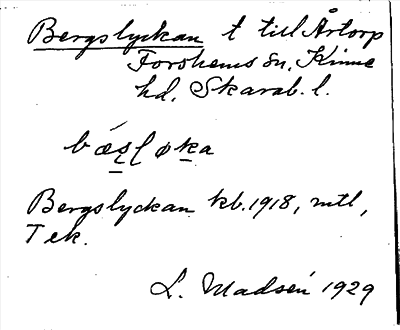 Bergslyckan t till Årtorp
Forshems sn, Kinne
hd, Skarab. l.
bǽs̠l øk̠a
Bergslyckan kb. 1918, mtl,
Tek.
L. Madsén 1929